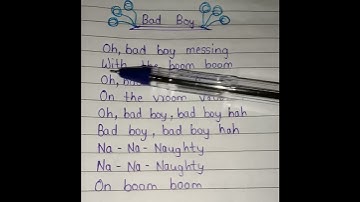 Bad Boy
Oh, bad boy messing
With the boom boom
Oh,
On the vroom
Oh, bad boy, bad boy hah
Bad boy, bad boy hah
Na - Na - Naughty
Na - Na - Naughty
On boom boom